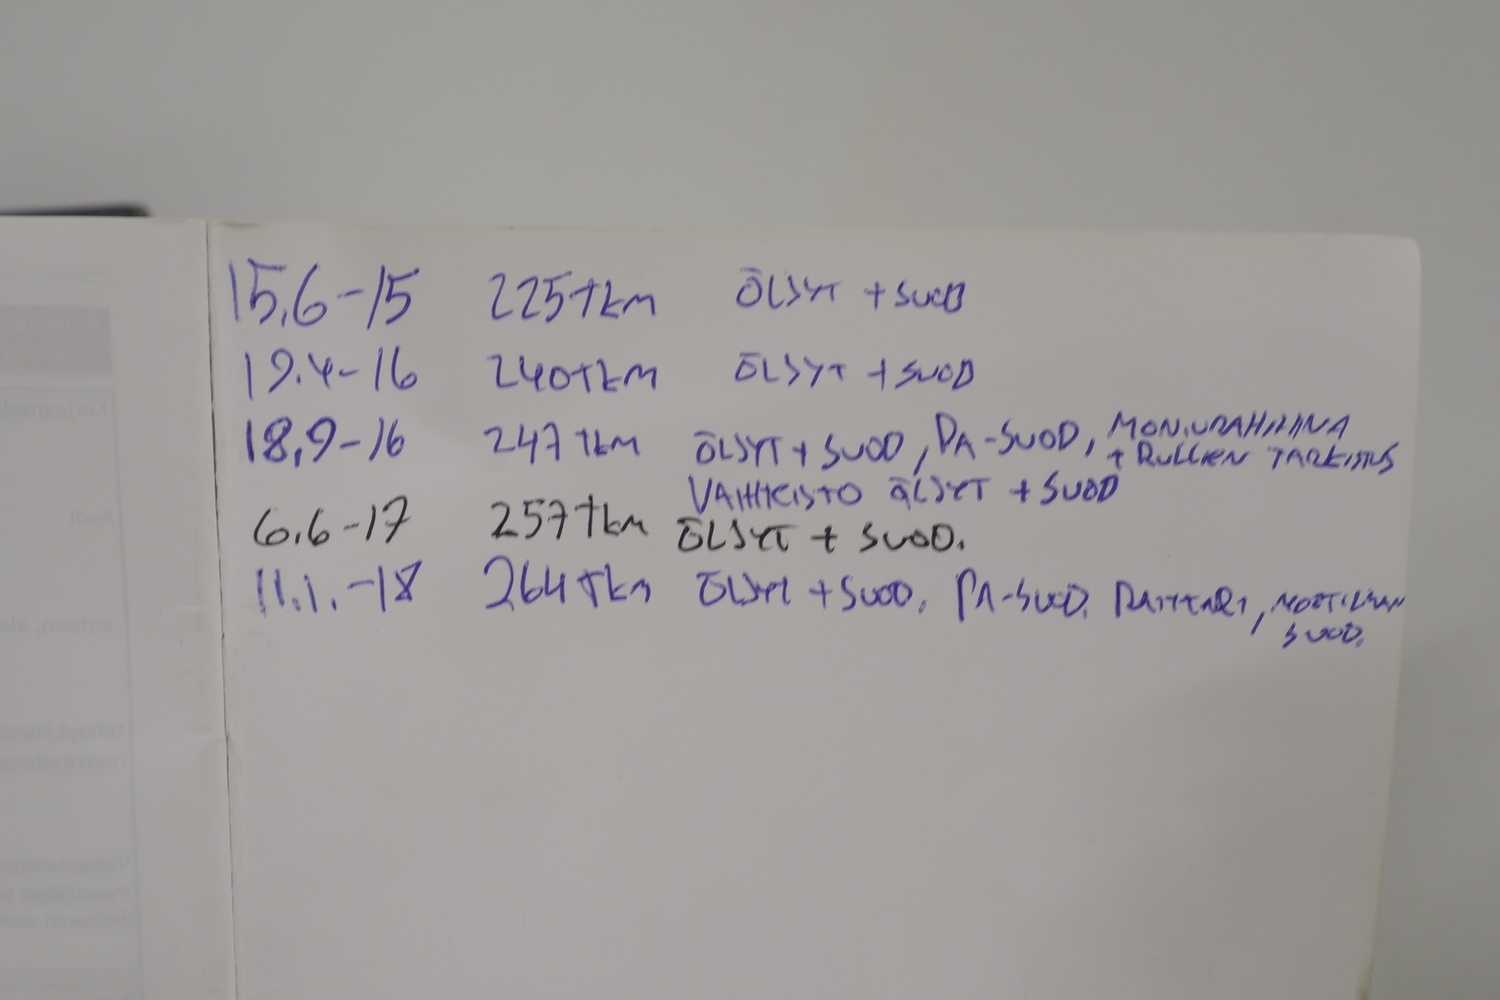 15.6-15 225tkm ÖLJYT + SUOD
19.4-16 240tkm ÖLJYT + SUOD
18.9-16 247tkm ÖLJYT + SUOD, PA-SUOD, MONIURAHIHNA
+ RULLIEN TARKISTUS
VAIHTEISTO ÖLJYT + SUOD
6.6-17 257tkm ÖLJYT + SUOD.
11.1.-18 264tkm ÖLJYT + SUOD. PA-SUOD. PATTERI, MOOTILMAN
SUOD.
Audi